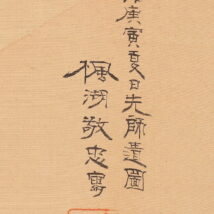 庚寅夏日先師遺圖
楓湖敬忠寫